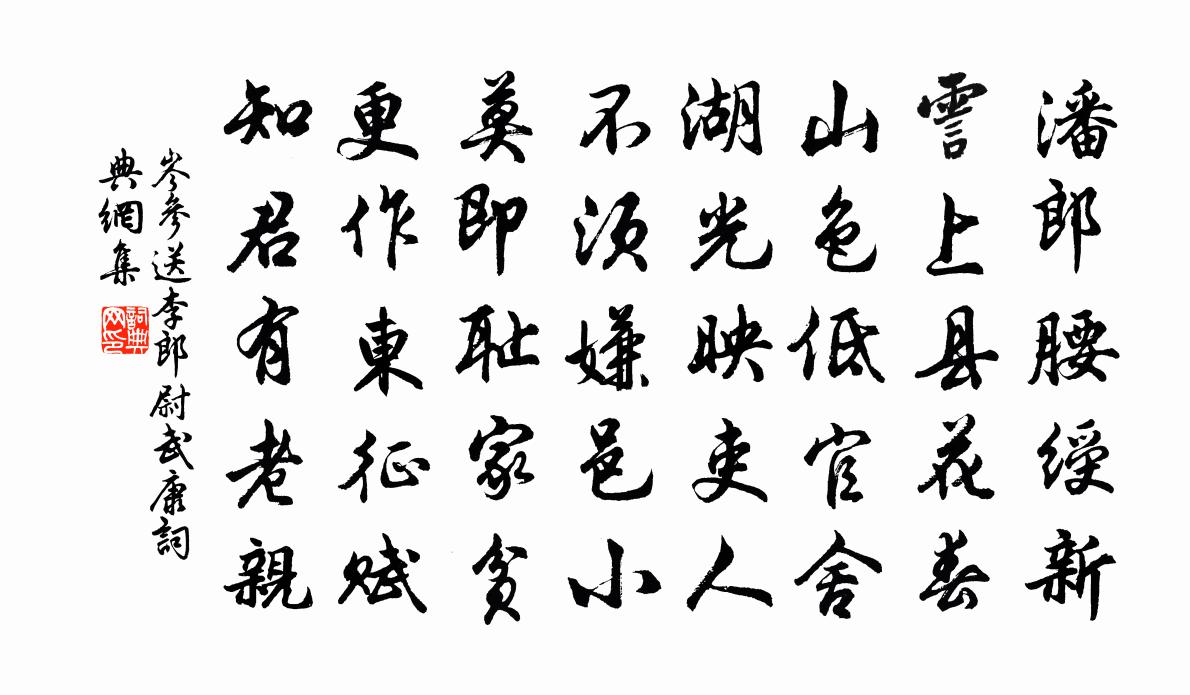 潘郎腰綬新
霅上县花春
山色低官舍
湖光映吏人
不須嫌邑小
莫即耻家貧
更作東征賦
知君有老親
岑參送李郎尉武康詞
典網集
詞典
网印